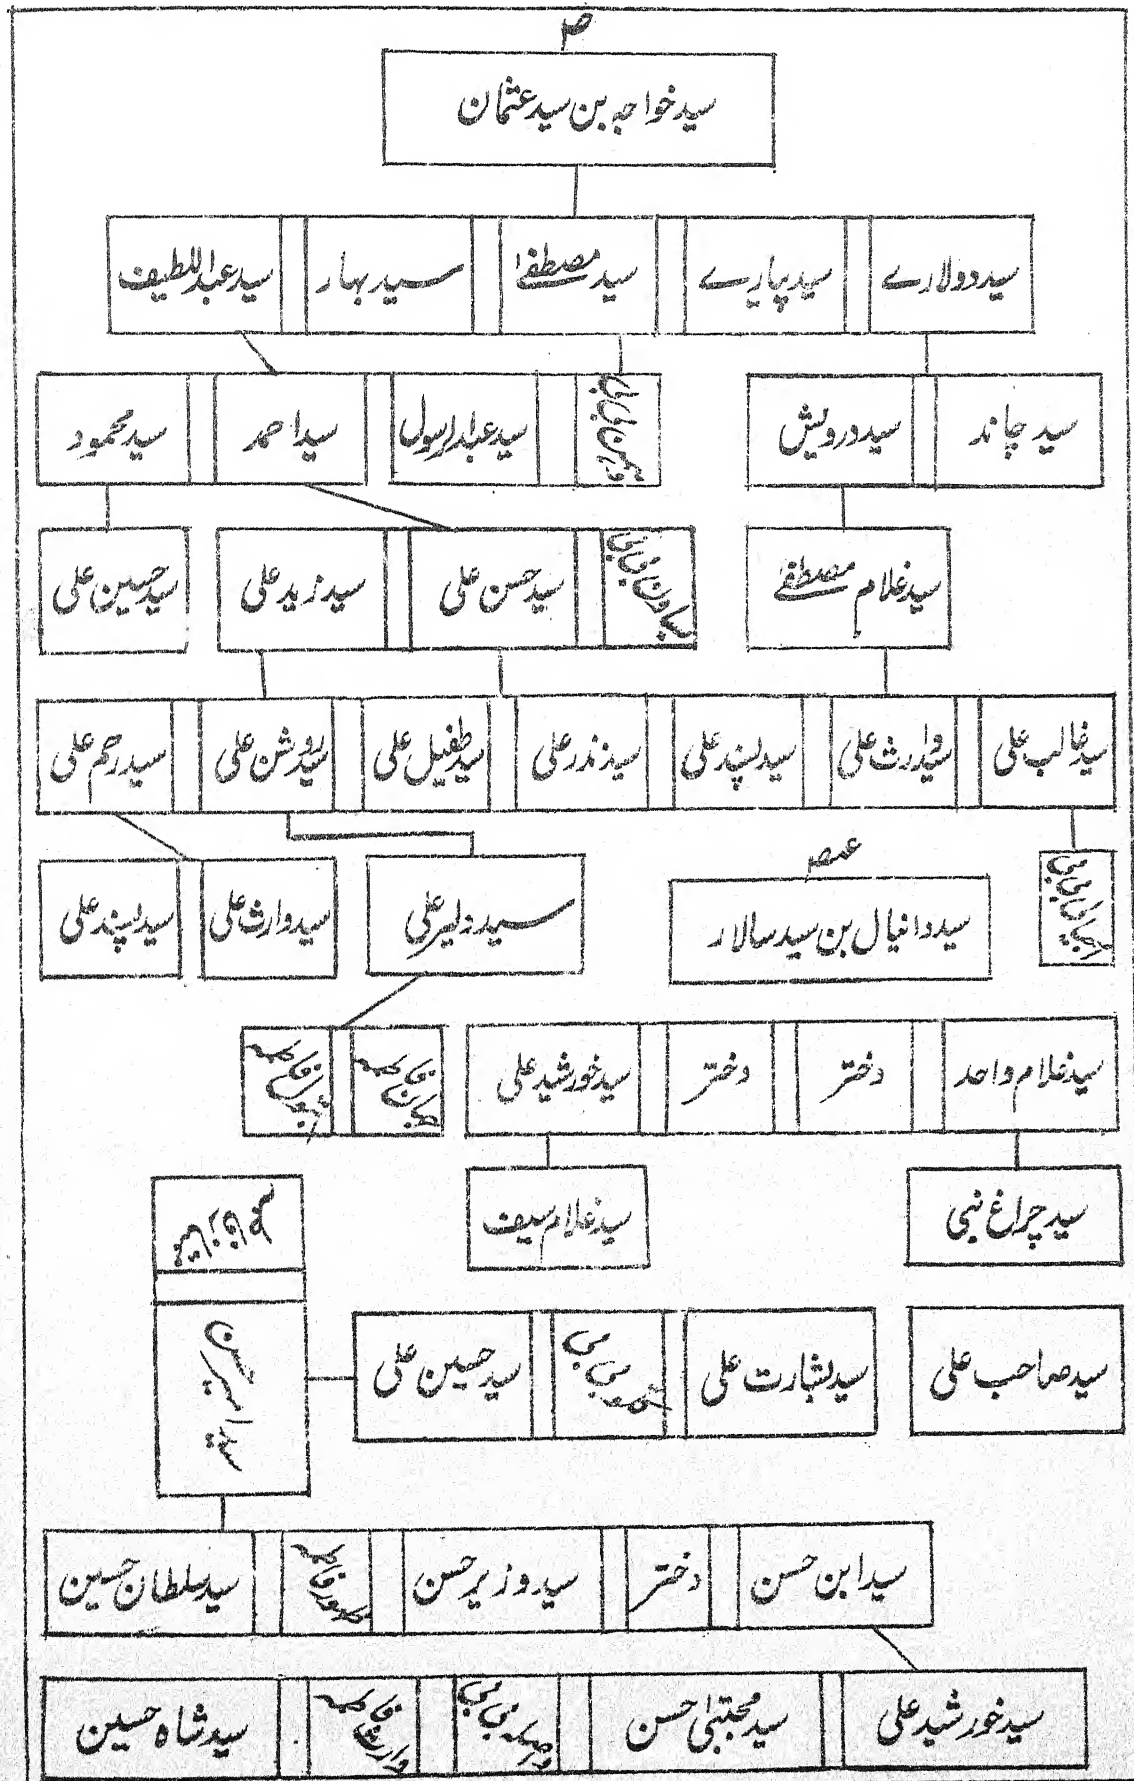 سید خواجہ بن سید عثمان
سید دولارے سید پیارے سید مصطفےٰ سید بہار سید عبداللطیف
سید چاند سید درویش بی بی سید عبدالرسول سید احمد سید محمود
سید غلام مصطفےٰ بی بی سید حسن علی سید زید علی سید حسین علی
سید غالب علی سید وارث علی سید پسند علی سید نذر علی سید طفیل علی سید روشن علی سید رحم علی
بی بی سید دلیر علی سید وارث علی سید پسند علی
سید دانیال بن سید سالار
سید غلام واحد دختر دختر سید خورشید علی فاطمہ فاطمہ
سید چراغ نبی سید غلام سیف
سید صاحب علی سید بشارت علی بی بی سید حسین علی سید امیر حسن
سید ابن حسن دختر سید وزیر حسن ظہور فاطمہ سید سلطان حسین
سید خورشید علی سید مجتبیٰ حسن بی بی وارث فاطمہ سید شاہ حسین